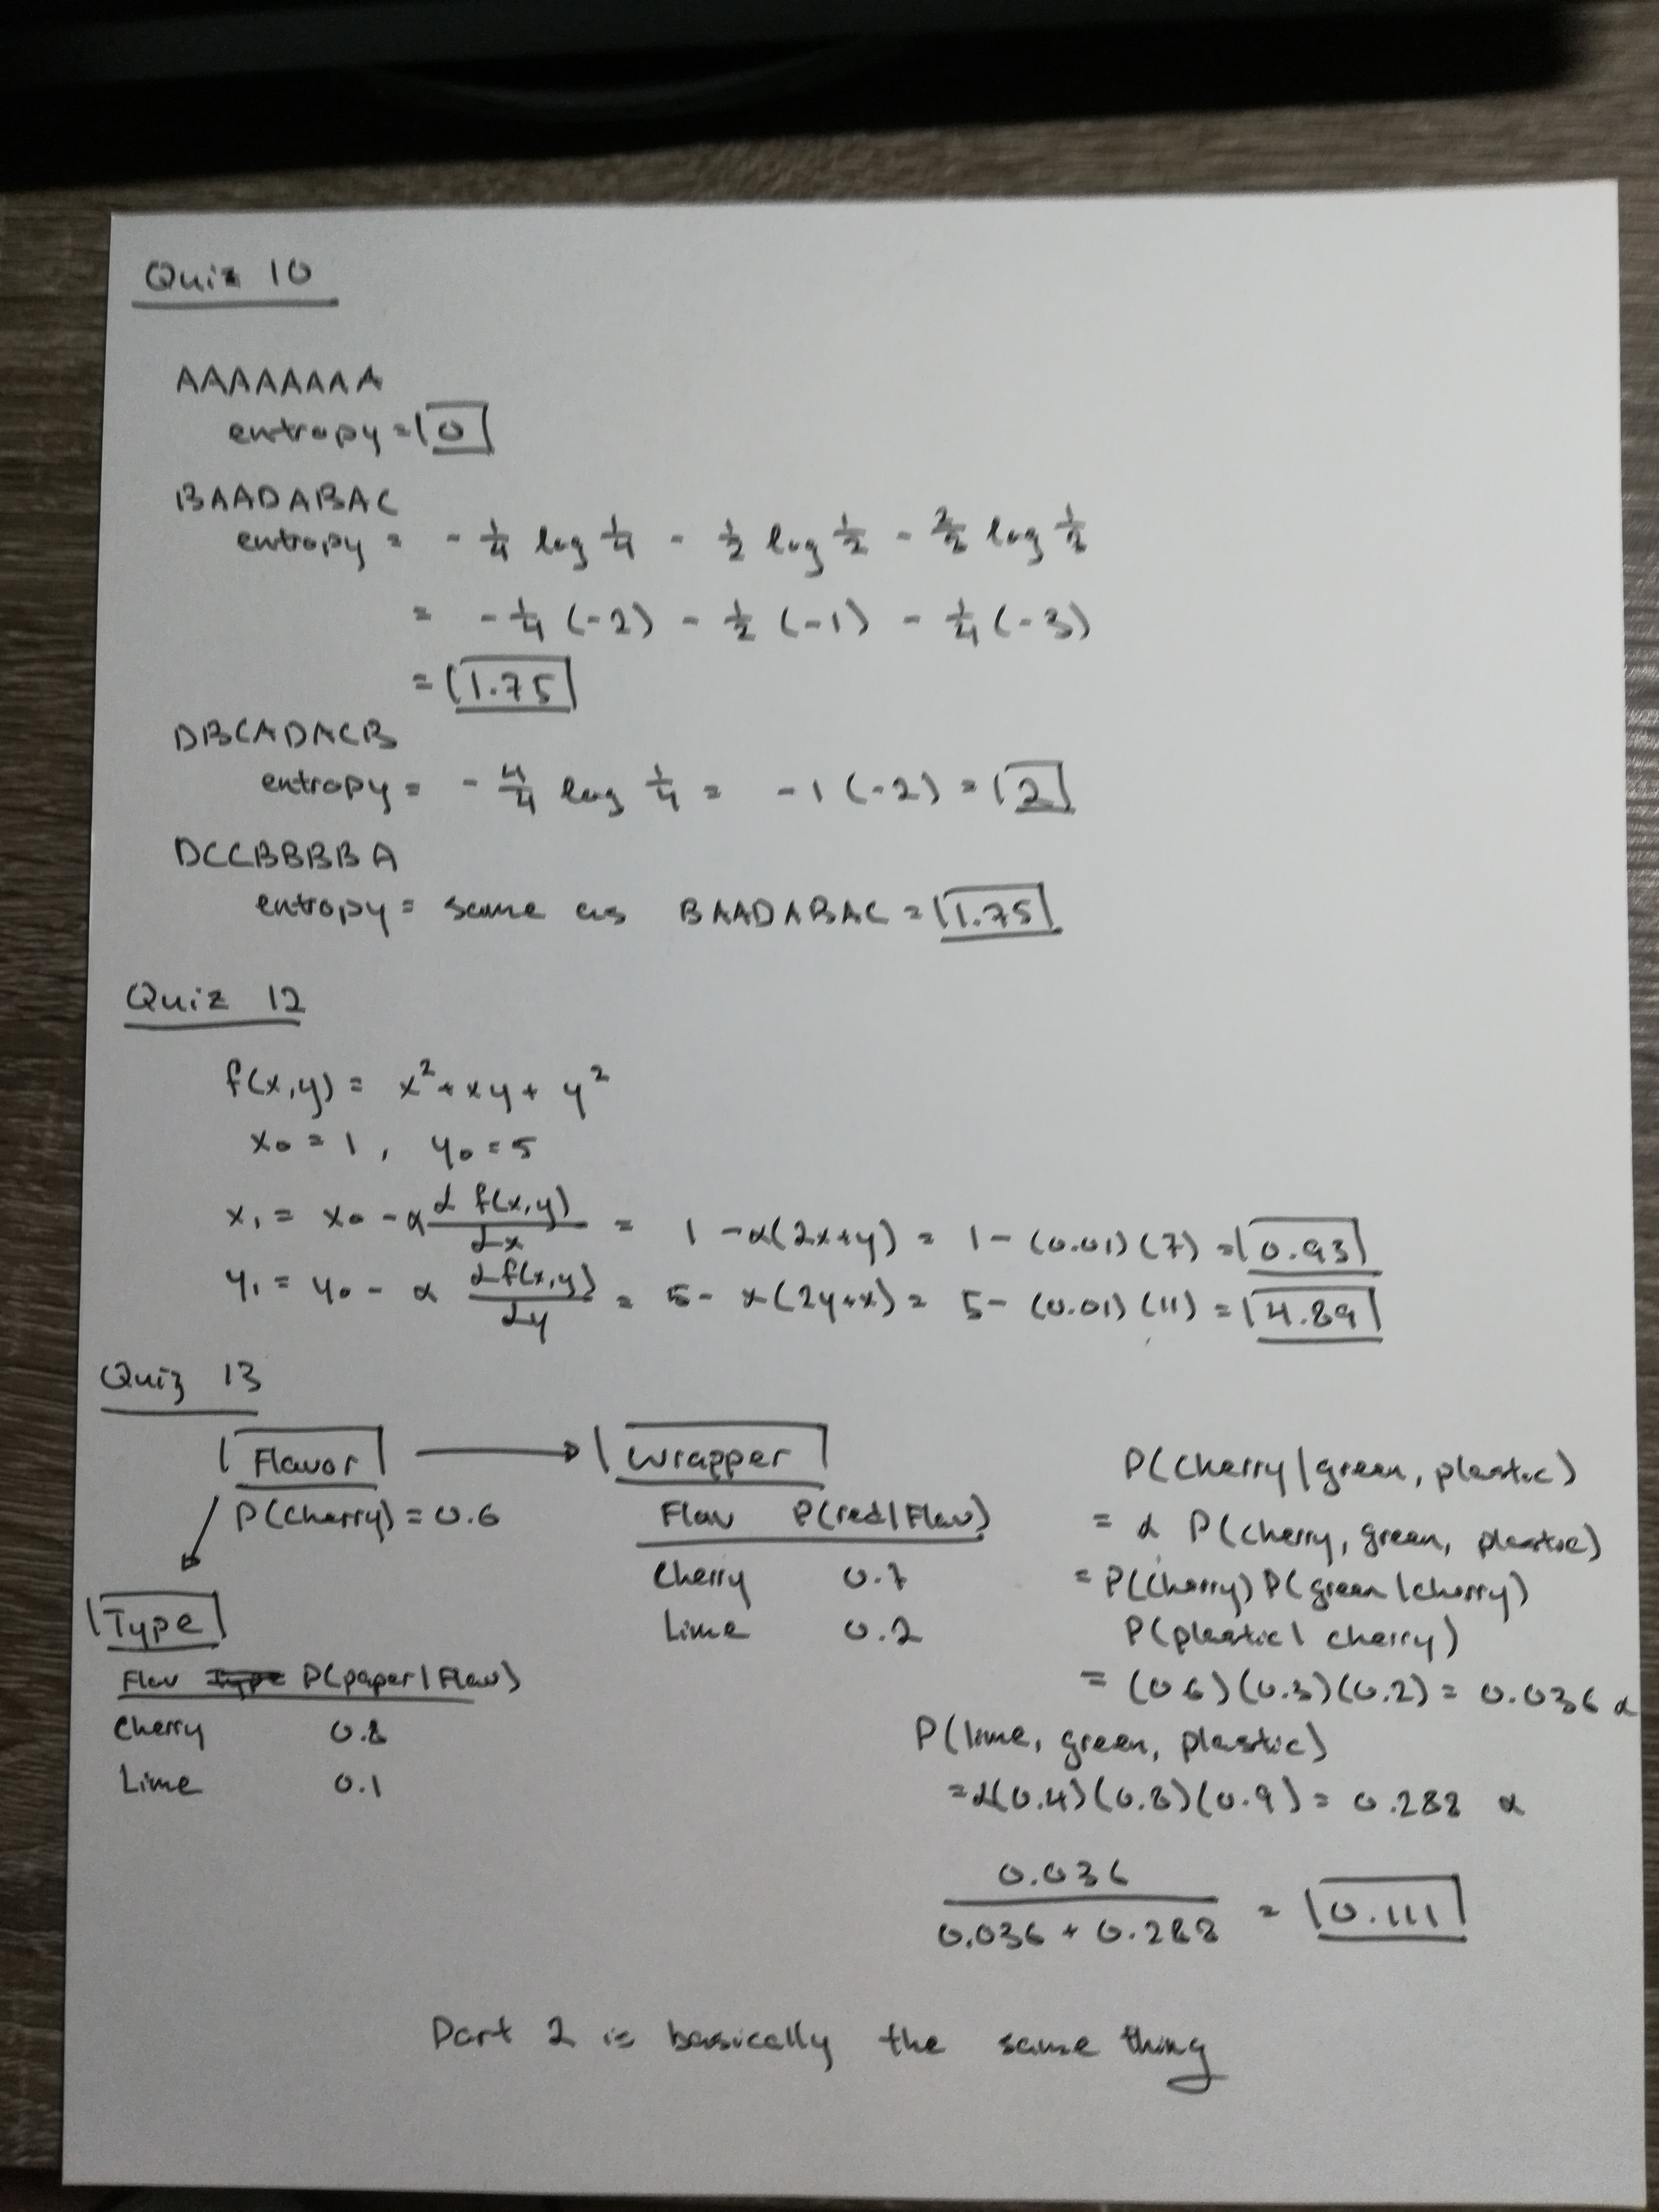 Quiz 10
AAAAAAAA
entropy = 0
BAADABAC
entropy = - 1/4 log 1/4 - 1/2 log 1/2 - 2/8 log 1/8
= - 1/4 (-2) - 1/2 (-1) - 1/4 (-3)
= 1.75
DBCADACB
entropy = - 4/4 log 1/4 = -1 (-2) = 2
DCCBBBBA
entropy = same as BAADABAC = 1.75
Quiz 12
f(x,y) = x² + xy + y²
x₀ = 1, y₀ = 5
x₁ = x₀ - α d f(x,y)/dx = 1 - α(2x+y) = 1 - (0.01)(7) = 0.93
y₁ = y₀ - α d f(x,y)/dy = 5 - α(2y+x) = 5 - (0.01)(11) = 4.89
Quiz 13
Flavor → Wrapper
P(Cherry) = 0.6
Flav P(red|Flav)
Cherry 0.7
Lime 0.2
Type
Flav P(paper|Flav)
Cherry 0.8
Lime 0.1
P(cherry|green, plastic)
= α P(cherry, green, plastic)
= P(cherry) P(green|cherry)
P(plastic|cherry)
= (0.6)(0.3)(0.2) = 0.036 α
P(lime, green, plastic)
= α(0.4)(0.8)(0.9) = 0.288 α
0.036
0.036 + 0.288 = 0.111
Part 2 is basically the same thing